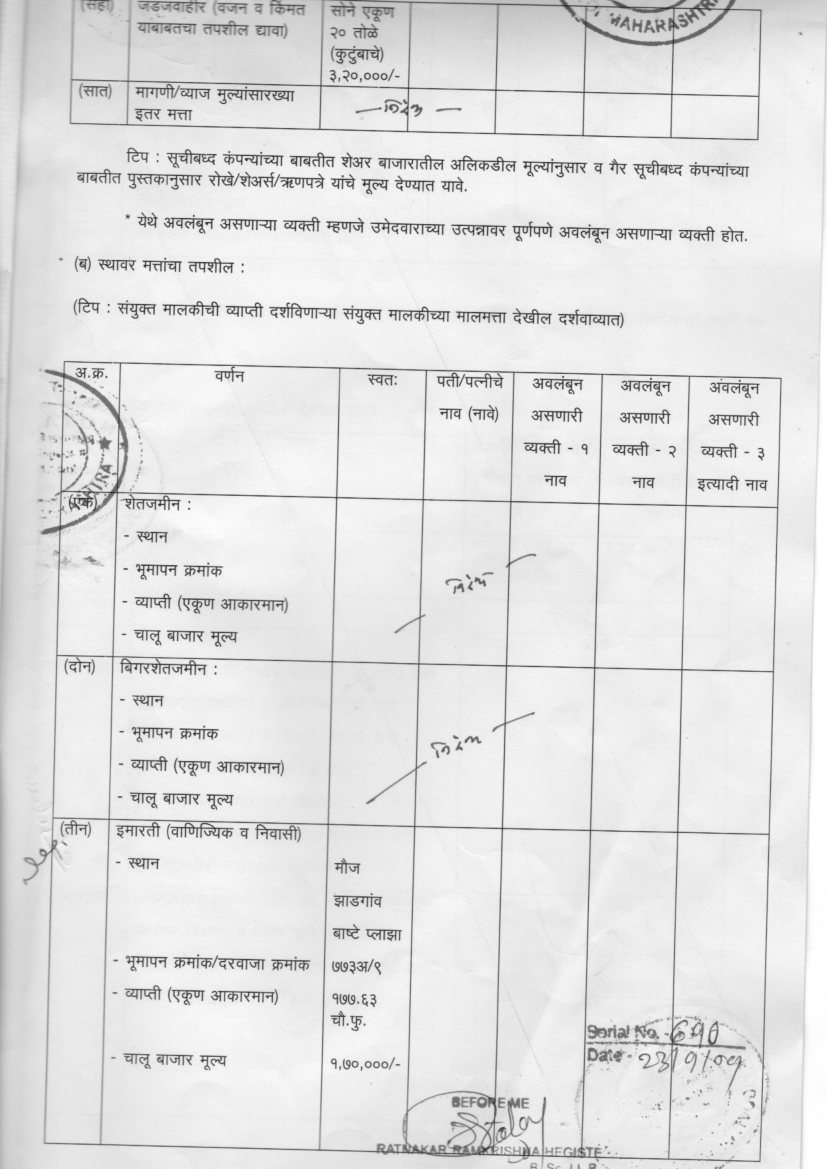 (सहा) जडजवाहीर (वजन व किंमत सोने एकूण
याबाबतचा तपशील द्यावा) २० तोळे
(कुटुंबाचे)
३,२०,०००/-
MAHARASHTRA
(सात) मागणी/व्याज मुल्यांसारख्या
इतर मत्ता
टिप : सूचीबध्द कंपन्यांच्या बाबतीत शेअर बाजारातील अलिकडील मूल्यांनुसार व गैर सूचीबध्द कंपन्यांच्या
बाबतीत पुस्तकानुसार रोखे/शेअर्स/ऋणपत्रे यांचे मूल्य देण्यात यावे.
* येथे अवलंबून असणाऱ्या व्यक्ती म्हणजे उमेदवाराच्या उत्पन्नावर पूर्णपणे अवलंबून असणाऱ्या व्यक्ती होत.
(ब) स्थावर मत्तांचा तपशील :
(टिप : संयुक्त मालकीची व्याप्ती दर्शविणाऱ्या संयुक्त मालकीच्या मालमत्ता देखील दर्शवाव्यात)
अ.क्र. वर्णन स्वतः पती/पत्नीचे अवलंबून अवलंबून अवलंबून
नाव (नावे) असणारी असणारी असणारी
व्यक्ती - १ व्यक्ती - २ व्यक्ती - ३
नाव नाव इत्यादी नाव
(एक) शेतजमीन :
- स्थान
- भूमापन क्रमांक
- व्याप्ती (एकूण आकारमान)
- चालू बाजार मूल्य
(दोन) बिगरशेतजमीन :
- स्थान
- भूमापन क्रमांक
- व्याप्ती (एकूण आकारमान)
- चालू बाजार मूल्य
(तीन) इमारती (वाणिज्यिक व निवासी)
- स्थान मौज
झाडगांव
बाष्टे प्लाझा
- भूमापन क्रमांक/दरवाजा क्रमांक ७७३अ/९
- व्याप्ती (एकूण आकारमान) १७७.६३
चौ.फु.
Serial No. -
- चालू बाजार मूल्य १,७०,०००/-
Date - 23/9/09
BEFORE ME
RATNAKAR RAMKRISHNA HEGISTE